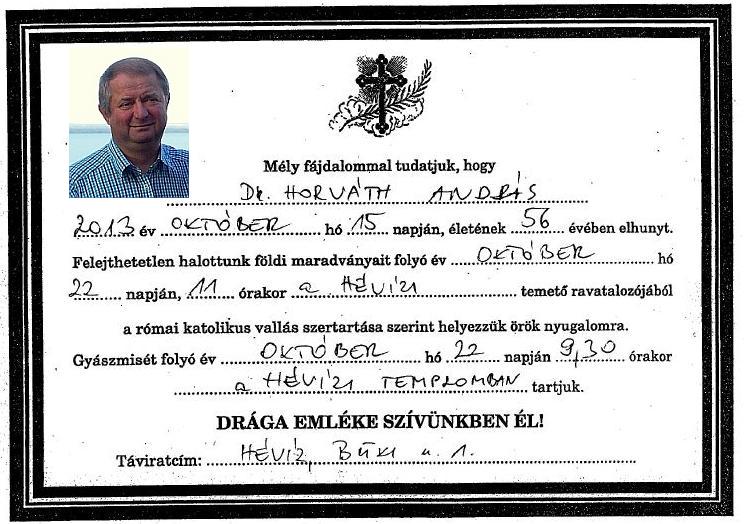 Mély fájdalommal tudatjuk, hogy
Dr. HORVÁTH ANDRÁS
2013 év OKTÓBER hó 15 napján, életének 56 évében elhunyt.
Felejthetetlen halottunk földi maradványait folyó év OKTÓBER hó
22 napján, 11 órakor a HÉVÍZI temető ravatalozójából
a római katolikus vallás szertartása szerint helyezzük örök nyugalomra.
Gyászmisét folyó év OKTÓBER hó 22 napján 9,30 órakor
a HÉVÍZI TEMPLOMBAN tartjuk.
DRÁGA EMLÉKE SZÍVÜNKBEN ÉL!
Táviratcím: HÉVÍZ, BÜKI u. 1.